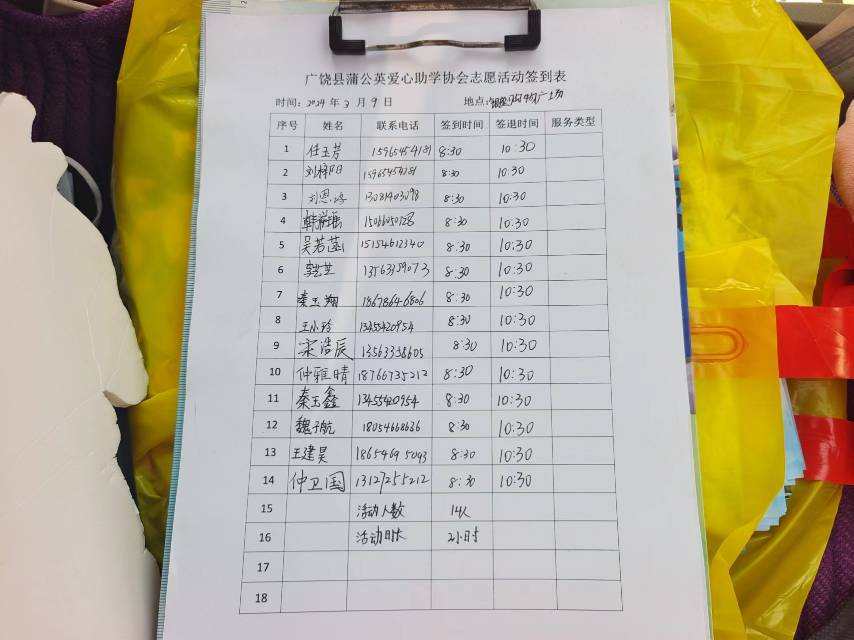 广饶县蒲公英爱心助学协会志愿活动签到表
时间：2024 年 3 月 9 日 地点： 购物广场
序号 姓名 联系电话 签到时间 签退时间 服务类型
1 任玉芳 15965454181 8:30 10:30
2 刘梓阳 15965454181 8:30 10:30
3 刘恩 13081903098 8:30 10:30
4 韩 瑶 8:30 10:30
5 吴若菡 15154612340 8:30 10:30
6 13563359073 8:30 10:30
7 秦玉翔 18678646806 8:30 10:30
8 王小玲 13455420954 8:30 10:30
9 宋浩辰 13563358605 8:30 10:30
10 仲雅晴 18766735212 8:30 10:30
11 秦玉鑫 13455420954 8:30 10:30
12 魏子航 18054668636 8:30 10:30
13 王建昊 18654695043 8:30 10:30
14 仲卫国 13127255212 8:30 10:30
15 活动人数 14人
16 活动时长 2小时
17
18